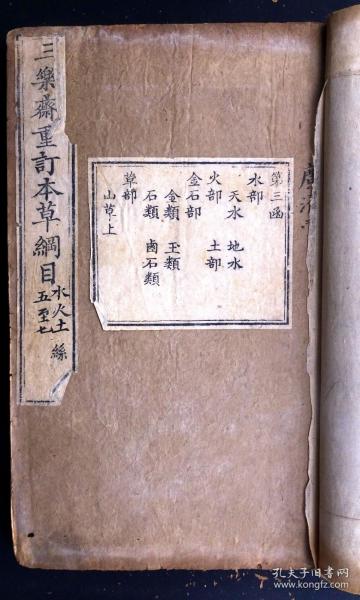 三樂齋重訂本草綱目
水火土
五至七
絲
第三函
水部
天水 地水
火部 土部
金石部
金類 玉類
石類 鹵石類
草部
山草上
孔夫子旧书网
www.kongfz.com